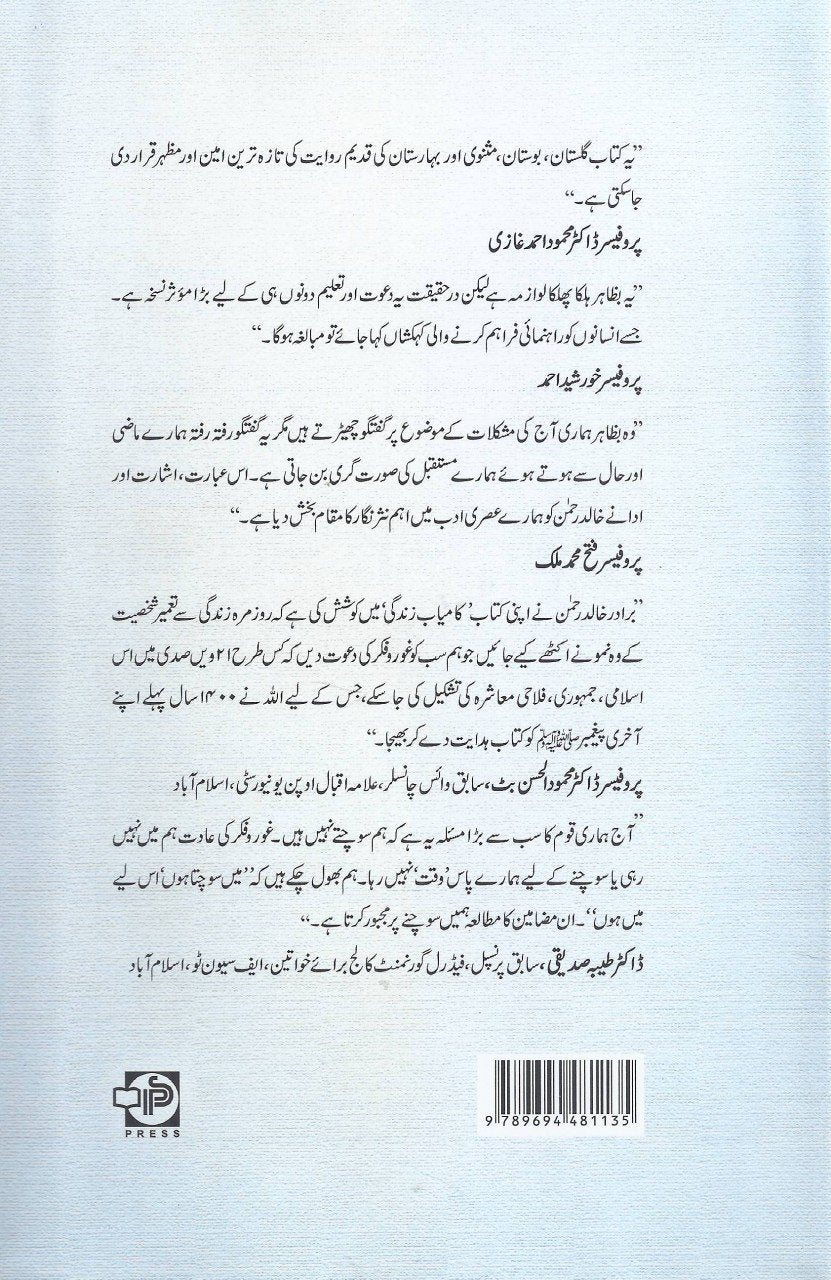 ”یہ کتاب گلستان، بوستان، مثنوی اور بہارستان کی قدیم روایت کی تازہ ترین امین اور مظہر قرار دی
جاسکتی ہے۔“
پروفیسر ڈاکٹر محمود احمد غازی
”یہ بظاہر ہلکا پھلکا لوازمہ ہے لیکن درحقیقت یہ دعوت اور تعلیم دونوں ہی کے لیے بڑا مؤثر نسخہ ہے۔
جسے انسانوں کو راہنمائی فراہم کرنے والی کہکشاں کہا جائے تو مبالغہ ہوگا۔“
پروفیسر خورشید احمد
”وہ بظاہر ہماری آج کی مشکلات کے موضوع پر گفتگو چھیڑتے ہیں مگر یہ گفتگو رفتہ رفتہ ہمارے ماضی
اور حال سے ہوتے ہوئے ہمارے مستقبل کی صورت گری بن جاتی ہے۔ اس عبارت، اشارت اور
ادا نے خالد رحمٰن کو ہمارے عصری ادب میں اہم نثر نگار کا مقام بخش دیا ہے۔“
پروفیسر فتح محمد ملک
”برادر خالد رحمٰن نے اپنی کتاب ’کامیاب زندگی‘ میں کوشش کی ہے کہ روزمرہ زندگی سے تعمیر شخصیت
کے وہ نمونے اکٹھے کیے جائیں جو ہم سب کو غور و فکر کی دعوت دیں کہ کس طرح ۲۱ویں صدی میں اس
اسلامی، جمہوری، فلاحی معاشرہ کی تشکیل کی جاسکے، جس کے لیے اللہ نے ۱۴۰۰ سال پہلے اپنے
آخری پیغمبر ﷺ کو کتاب ہدایت دے کر بھیجا۔“
پروفیسر ڈاکٹر محمود الحسن بٹ، سابق وائس چانسلر، علامہ اقبال اوپن یونیورسٹی، اسلام آباد
”آج ہماری قوم کا سب سے بڑا مسئلہ یہ ہے کہ ہم سوچتے نہیں ہیں۔ غور و فکر کی عادت ہم میں نہیں
رہی یا سوچنے کے لیے ہمارے پاس ’وقت‘ نہیں رہا۔ ہم بھول چکے ہیں کہ ”میں سوچتا ہوں‘ اس لیے
میں ہوں“۔ ان مضامین کا مطالعہ ہمیں سوچنے پر مجبور کرتا ہے۔“
ڈاکٹر طیبہ صدیقی، سابق پرنسپل، فیڈرل گورنمنٹ کالج برائے خواتین، ایف سیون ٹو، اسلام آباد
IPS
PRESS
9 789694 481135